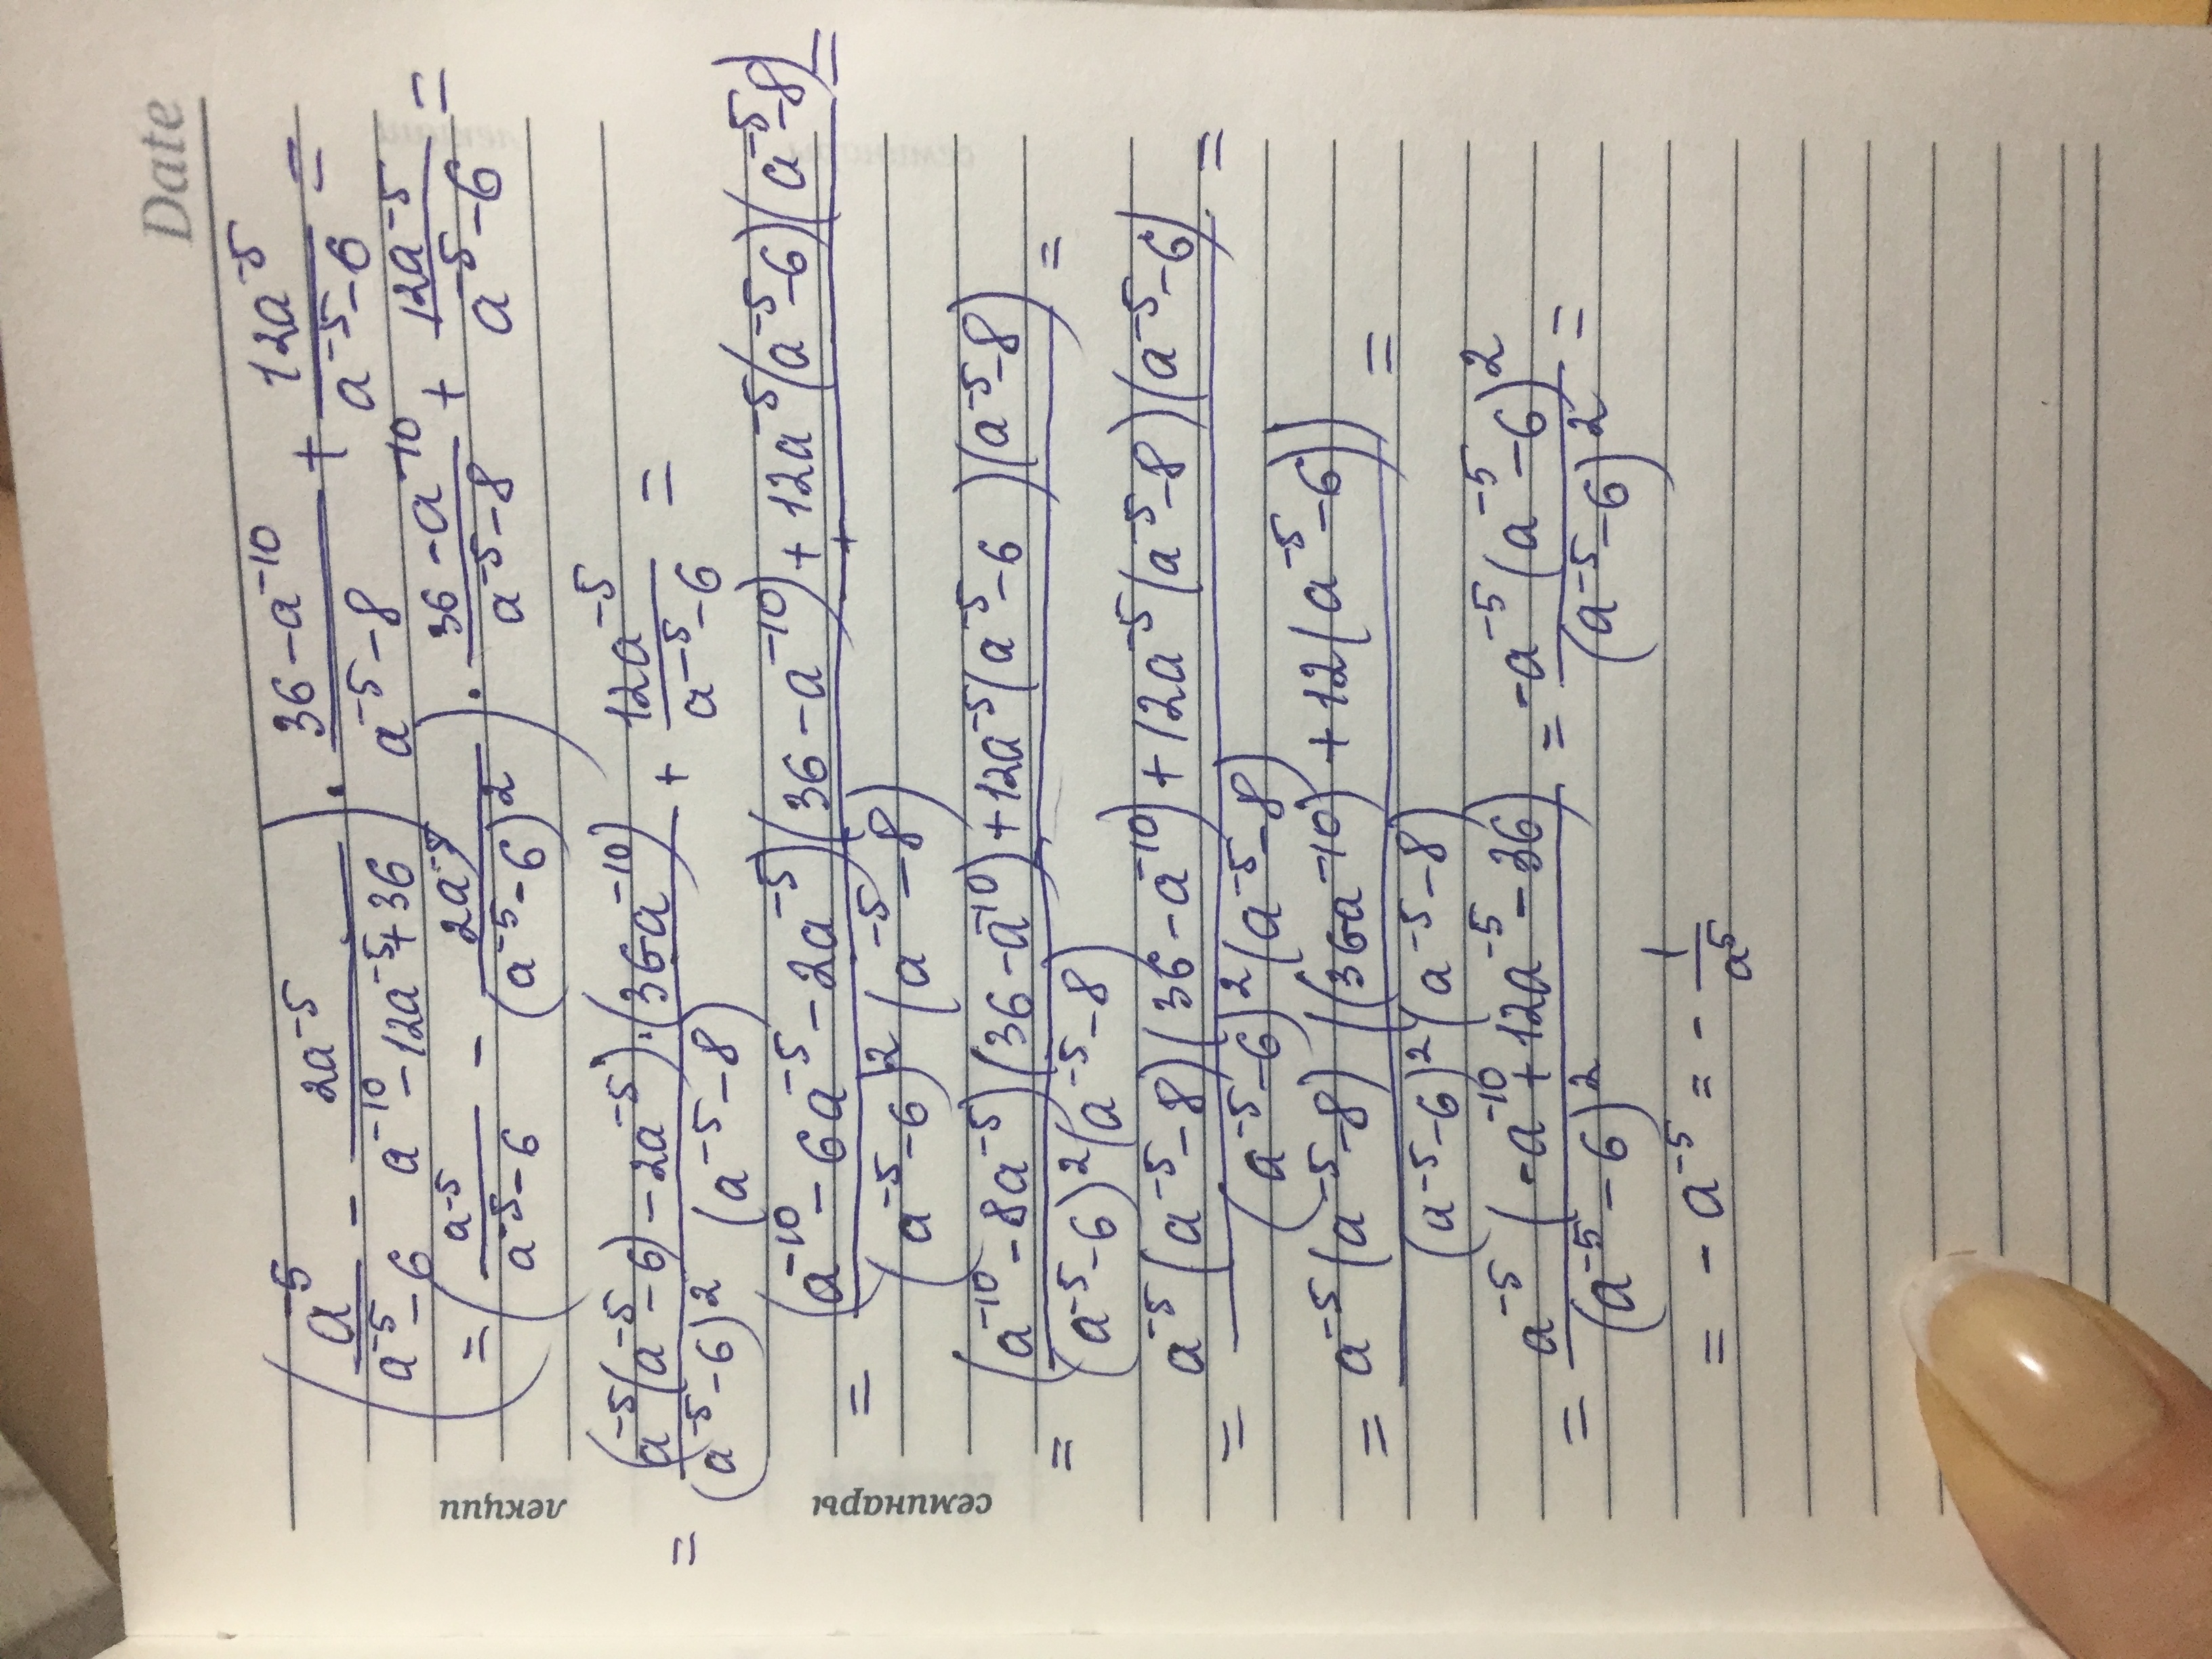 Date
( a⁻⁵/(a⁻⁵-6) - 2a⁻⁵/(a⁻¹⁰-12a⁻⁵+36) ) · (36-a⁻¹⁰)/(a⁻⁵-8) + 12a⁻⁵/(a⁻⁵-6) =
= ( a⁻⁵/(a⁻⁵-6) - 2a⁻⁵/(a⁻⁵-6)² ) · (36-a⁻¹⁰)/(a⁻⁵-8) + 12a⁻⁵/(a⁻⁵-6) =
= (a⁻⁵(a⁻⁵-6)-2a⁻⁵)·(36-a⁻¹⁰)/(a⁻⁵-6)²(a⁻⁵-8) + 12a⁻⁵/(a⁻⁵-6) =
= (a⁻¹⁰-6a⁻⁵-2a⁻⁵)(36-a⁻¹⁰)+12a⁻⁵(a⁻⁵-6)(a⁻⁵-8)/(a⁻⁵-6)²(a⁻⁵-8) =
= (a⁻¹⁰-8a⁻⁵)(36-a⁻¹⁰)+12a⁻⁵(a⁻⁵-6)(a⁻⁵-8)/(a⁻⁵-6)²(a⁻⁵-8) =
= a⁻⁵(a⁻⁵-8)(36-a⁻¹⁰)+12a⁻⁵(a⁻⁵-8)(a⁻⁵-6)/(a⁻⁵-6)²(a⁻⁵-8) =
= a⁻⁵(a⁻⁵-8)((36-a⁻¹⁰)+12(a⁻⁵-6))/(a⁻⁵-6)²(a⁻⁵-8) =
= a⁻⁵(-a⁻¹⁰+12a⁻⁵-36)/(a⁻⁵-6)² = -a⁻⁵(a⁻⁵-6)²/(a⁻⁵-6)² =
= -a⁻⁵ = -1/a⁵
лекции
семинары